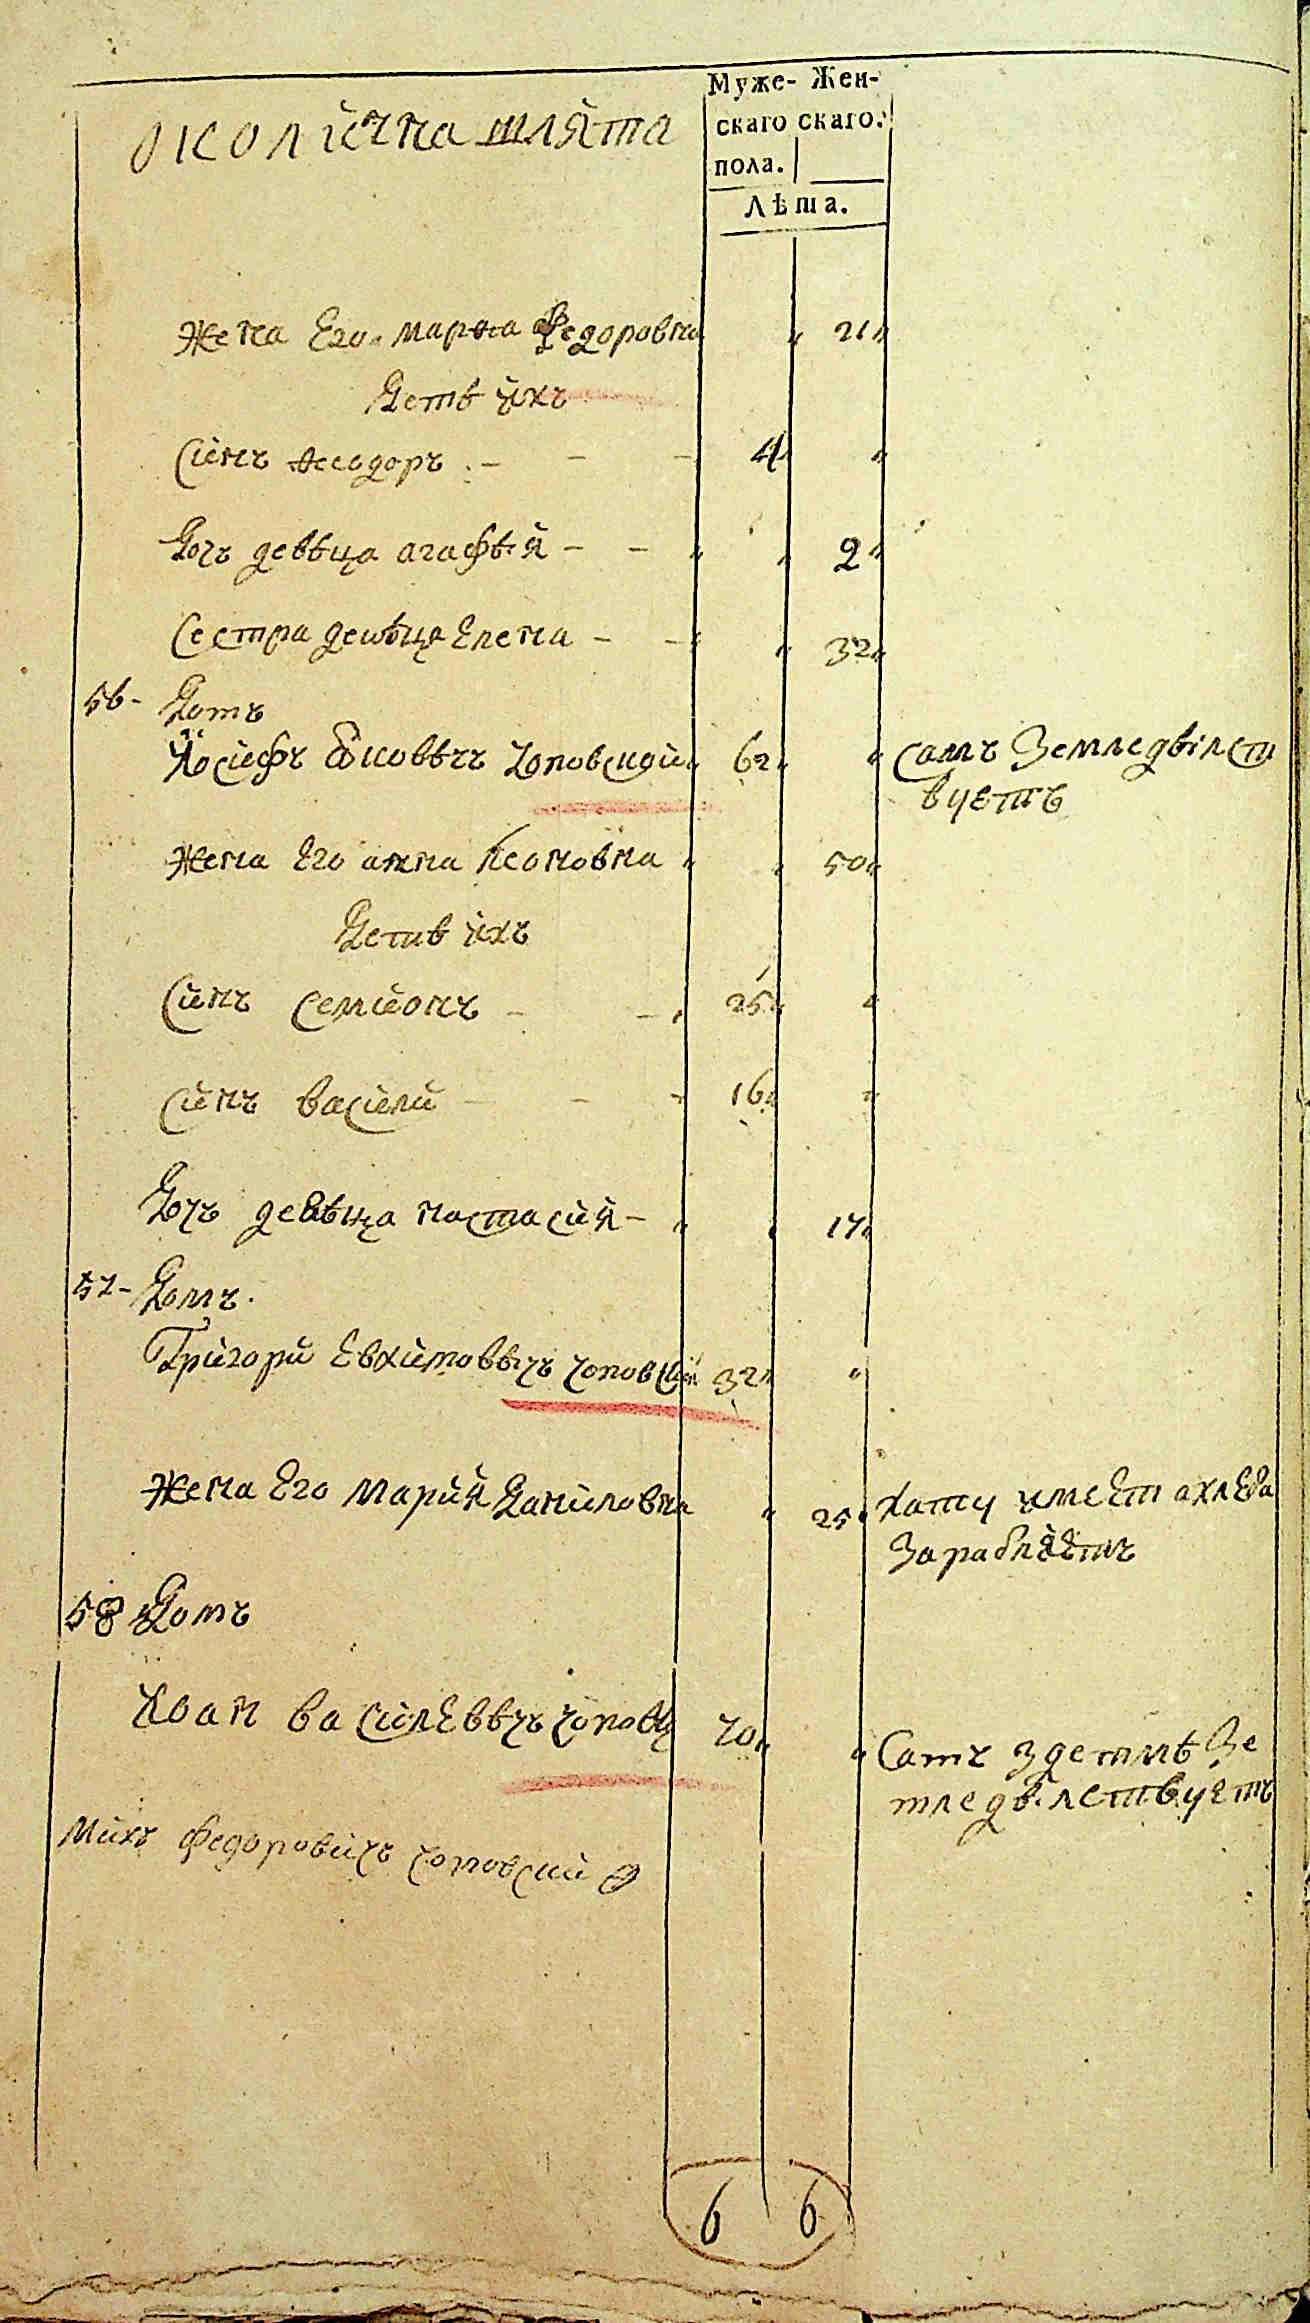 Муже- Жен-
скаго скаго.
пола.
Лѣта.
околична шляхта
Жена Его Марѳа Федоровна " 21"
Дети ихъ
Синъ Ѳеодоръ - - - 4" "
Дочъ девица агафѣя - - " " 2"
Сестра девица Елена - - " " 32"
56- Домъ
Иосифъ Яковѣчъ Чоповский 62" " самъ Земледѣлст
вуетъ
Жена Его анна Леоновна " " 50"
Дети ихъ
Синъ Семионъ - - " 25" "
Синъ василий - - - 16" "
Дочъ девѣца настасия - " " 17"
57- Домъ.
Григори Евхимовѣчъ Чоповски 32" "
Жена Его Мария Даниловна " 25" хату имеет а хлеба
Зарабляетъ
58 Домъ
Иван Василевѣчъ Чоповс 70" " Самъ з детмѣ Зе
мледѣлствуетъ
Михъ Федоровичъ Чоповский
6 6